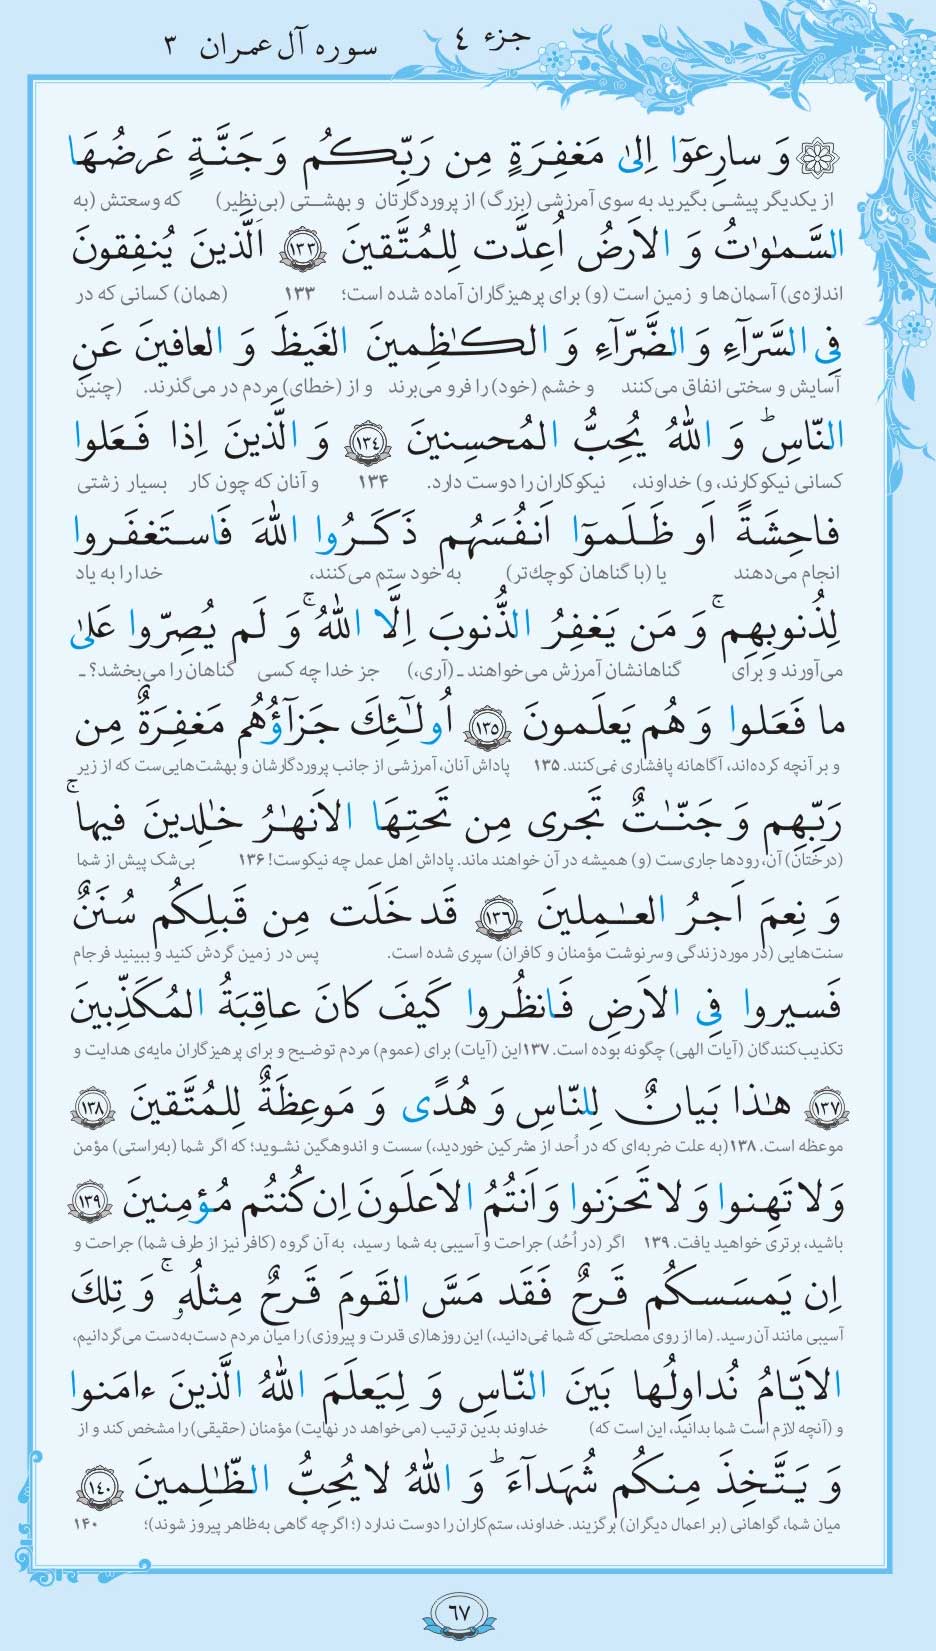 جزء ٤ سوره آل عمران ٣
وَ سارِعوٓا اِلىٰ مَغفِرَةٍ مِن رَبِّكُم وَ جَنَّةٍ عَرضُهَا
از یکدیگر پیشی بگیرید به سوی آمرزشی (بزرگ) از پروردگارتان و بهشتی (بی‌نظیر) که وسعتش (به
السَّمٰوٰتُ وَ الاَرضُ اُعِدَّت لِلمُتَّقينَ ﴿١٣٣﴾ اَلَّذينَ يُنفِقونَ
اندازه‌ی) آسمان‌ها و زمین است (و) برای پرهیزگاران آماده شده است؛ ۱۳۳ (همان) کسانی که در
فِى السَّرّآءِ وَ الضَّرّآءِ وَ الكٰظِمينَ الغَيظَ وَ العافينَ عَنِ
آسایش و سختی انفاق می‌کنند و خشم (خود) را فرو می‌برند و از (خطای) مردم در می‌گذرند. (چنین
النّاسِ ۗ وَ اللهُ يُحِبُّ المُحسِنينَ ﴿١٣٤﴾ وَ الَّذينَ اِذا فَعَلوا
کسانی نیکوکارند، و) خداوند، نیکوکاران را دوست دارد. ۱۳۴ و آنان که چون کار بسیار زشتی
فاحِشَةً اَو ظَلَموٓا اَنفُسَهُم ذَكَرُوا اللهَ فَاستَغفَروا
انجام می‌دهند یا (با گناهان کوچک‌تر) به خود ستم می‌کنند، خدا را به یاد
لِذُنوبِهِم ۚ وَ مَن يَغفِرُ الذُّنوبَ اِلَّا اللهُ ۚ وَ لَم يُصِرّوا عَلىٰ
می‌آورند و برای گناهانشان آمرزش می‌خواهند ـ (آری،) جز خدا چه کسی گناهان را می‌بخشد؟ ـ
ما فَعَلوا وَ هُم يَعلَمونَ ﴿١٣٥﴾ اُولٰٓئِكَ جَزآؤُهُم مَغفِرَةٌ مِن
و بر آنچه کرده‌اند، آگاهانه پافشاری نمی‌کنند. ۱۳۵ پاداش آنان، آمرزشی از جانب پروردگارشان و بهشت‌هایی‌ست که از زیر
رَبِّهِم وَ جَنّٰتٌ تَجرى مِن تَحتِهَا الاَنهٰرُ خٰلِدينَ فيها ۚ
(درختان) آن، رودها جاری‌ست (و) همیشه در آن خواهند ماند. پاداش اهل عمل چه نیکوست! ۱۳۶ بی‌شک پیش از شما
وَ نِعمَ اَجرُ العٰمِلينَ ﴿١٣٦﴾ قَد خَلَت مِن قَبلِكُم سُنَنٌ
سنت‌هایی (در مورد زندگی و سرنوشت مؤمنان و کافران) سپری شده است. پس در زمین گردش کنید و ببینید فرجام
فَسيروا فِى الاَرضِ فَانظُروا كَيفَ كانَ عاقِبَةُ المُكَذِّبينَ
تکذیب‌کنندگان (آیات الهی) چگونه بوده است. ۱۳۷ این (آیات) برای (عموم) مردم توضیح و برای پرهیزگاران مایه‌ی هدایت و
﴿١٣٧﴾ هٰذا بَيانٌ لِلنّاسِ وَ هُدًى وَ مَوعِظَةٌ لِلمُتَّقينَ ﴿١٣٨﴾
موعظه است. ۱۳۸ (به علت ضربه‌ای که در اُحد از مشرکین خوردید،) سست و اندوهگین نشوید؛ که اگر شما (به‌راستی) مؤمن
وَ لا تَهِنوا وَ لا تَحزَنوا وَ اَنتُمُ الاَعلَونَ اِن كُنتُم مُؤمِنينَ ﴿١٣٩﴾
باشید، برتری خواهید یافت. ۱۳۹ اگر (در اُحُد) جراحت و آسیبی به شما رسید، به آن گروه (کافر نیز از طرف شما) جراحت و
اِن يَمسَسكُم قَرحٌ فَقَد مَسَّ القَومَ قَرحٌ مِثلُهٗ ۚ وَ تِلكَ
آسیبی مانند آن رسید. (ما از روی مصلحتی که شما نمی‌دانید،) این روزها(ی قدرت و پیروزی) را میان مردم دست‌به‌دست می‌گردانیم،
الاَيّامُ نُداوِلُها بَينَ النّاسِ وَ لِيَعلَمَ اللهُ الَّذينَ ءامَنوا
و (آنچه لازم است شما بدانید، این است که) خداوند بدین ترتیب (می‌خواهد در نهایت) مؤمنان (حقیقی) را مشخص کند و از
وَ يَتَّخِذَ مِنكُم شُهَدآءَ ۗ وَ اللهُ لا يُحِبُّ الظّٰلِمينَ ﴿١٤٠﴾
میان شما، گواهانی (بر اعمال دیگران) برگزیند. خداوند، ستم‌کاران را دوست ندارد (؛ اگرچه گاهی به‌ظاهر پیروز شوند)؛ ۱۴۰
٦٧